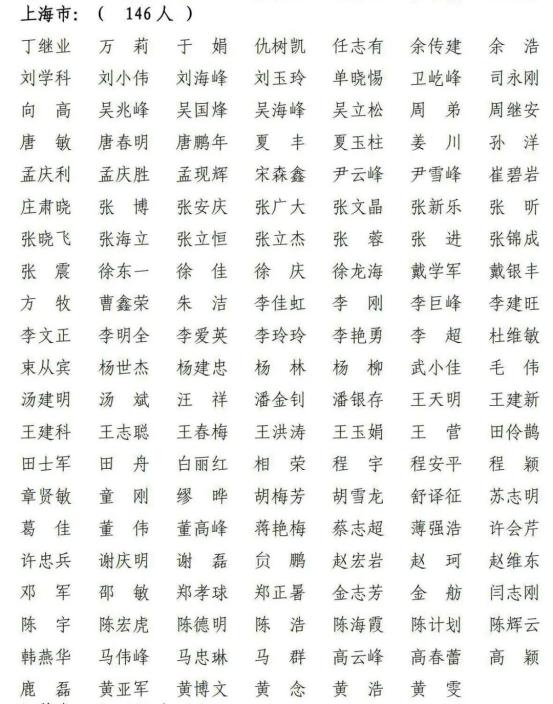 上海市：（ 146人 ）
丁继业 万 莉 于 娟 仇树凯 任志有 余传建 余 浩
刘学科 刘小伟 刘海峰 刘玉玲 单晓惕 卫屹峰 司永刚
向 高 吴兆峰 吴国烽 吴海峰 吴立松 周 弟 周继安
唐 敏 唐春明 唐鹏年 夏 丰 夏玉柱 姜 川 孙 洋
孟庆利 孟庆胜 孟现辉 宋森鑫 尹云峰 尹雪峰 崔碧岩
庄肃晓 张 博 张安庆 张广大 张文晶 张新乐 张 昕
张晓飞 张海立 张立恒 张立杰 张 蓉 张 进 张锦成
张 震 徐东一 徐 佳 徐 庆 徐龙海 戴学军 戴银丰
方 牧 曹鑫荣 朱 洁 李佳虹 李 刚 李巨峰 李建旺
李文正 李明全 李爱英 李玲玲 李艳勇 李 超 杜维敏
束从宾 杨世杰 杨建忠 杨 林 杨 柳 武小佳 毛 伟
汤建明 汤 斌 汪 祥 潘金钊 潘银存 王天明 王建新
王建科 王志聪 王春梅 王洪涛 王玉娟 王 营 田伶鹊
田士军 田 舟 白丽红 相 荣 程 宇 程安平 程 颖
章贤敏 童 刚 缪 晔 胡梅芳 胡雪龙 舒译征 苏志明
葛 佳 董 伟 董高峰 蒋艳梅 蔡志超 薄强浩 许会芹
许忠兵 谢庆明 谢 磊 贠 鹏 赵宏岩 赵 珂 赵维东
邓 军 邵 敏 郑孝球 郑正暑 金志芳 金 舫 闫志刚
陈 宇 陈宏虎 陈德明 陈 浩 陈海霞 陈计划 陈辉云
韩燕华 马伟峰 马忠琳 马 群 高云峰 高春蕾 高 颖
鹿 磊 黄亚军 黄博文 黄 念 黄 浩 黄 雯